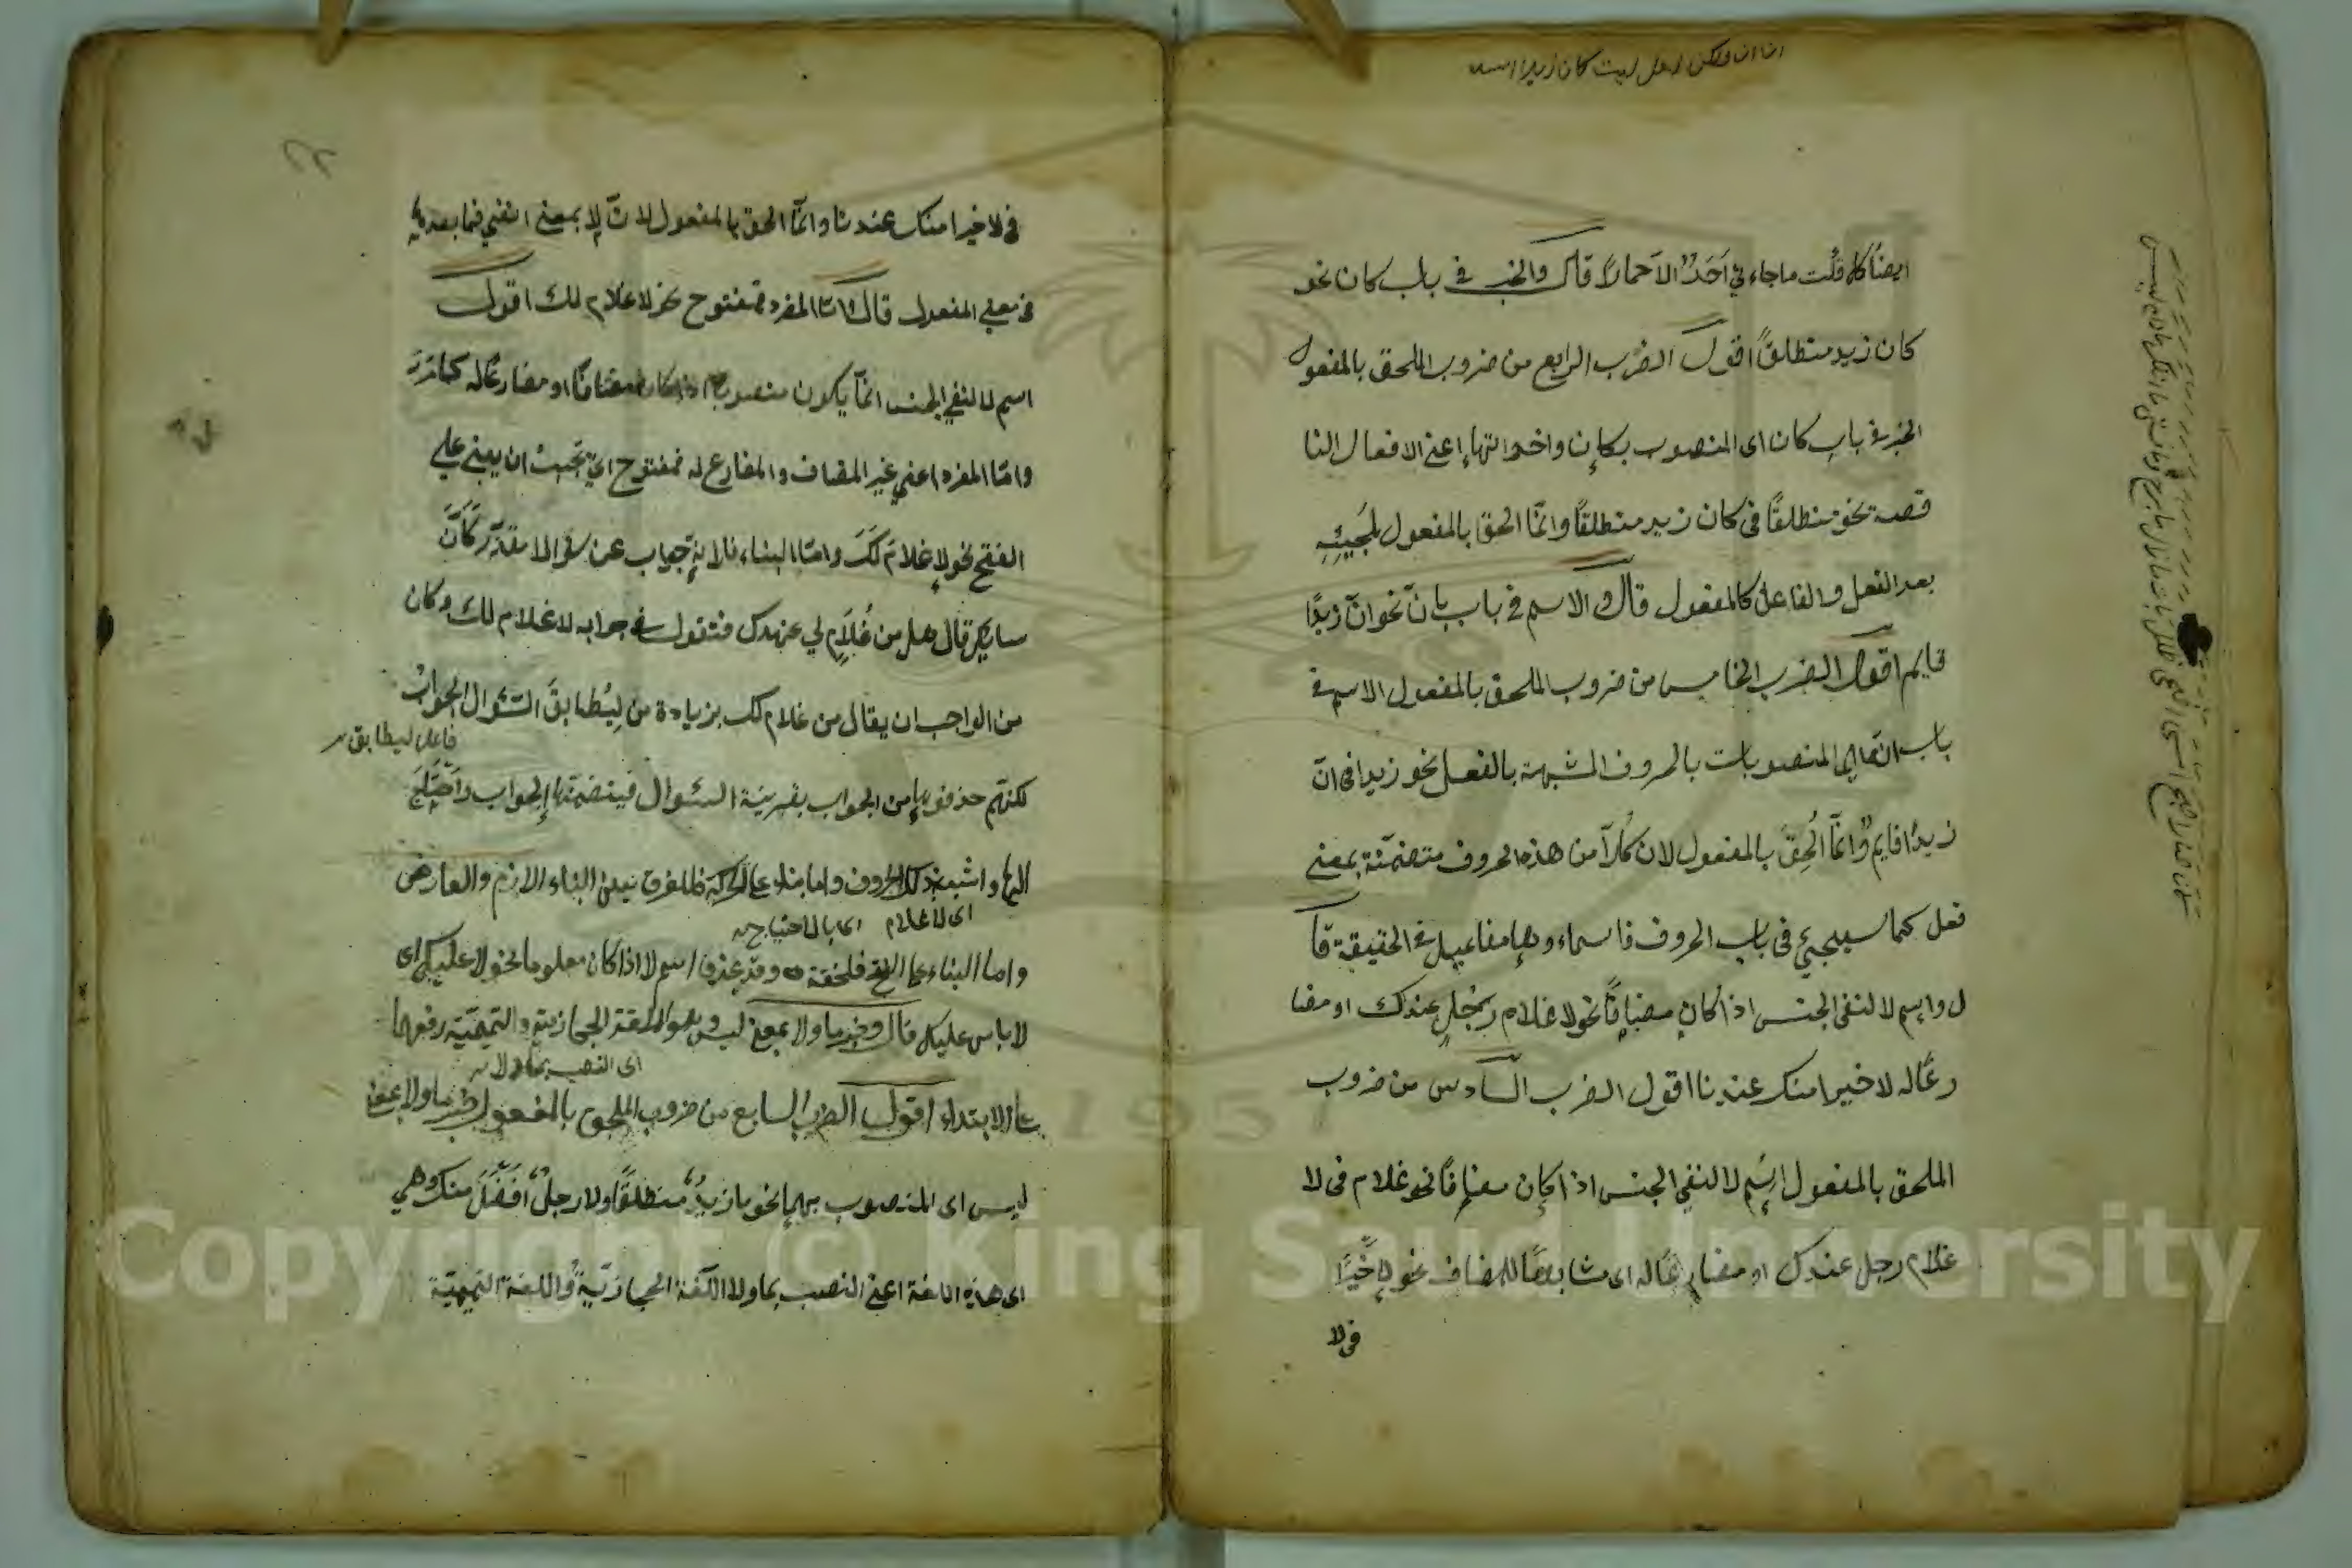 ان ان ولكن لعل ليت كان زيدا اسد
ايضا كله قلت ما جاءني احد الا حمارا قال والخبر في باب كان نحو
كان زيد منطلقا اقول الضرب الرابع من ضروب الملحق بالمفعول
الخبر في باب كان اى المنصوب بكان واخواتها اعنى الافعال النا
قصة نحو منطلقا فى كان زيد منطلقا وانما الحق بالمفعول لمجيئه
بعد الفعل والفاعل كالمفعول قال والاسم في باب بان نحو ان زيدا
قايم اقول الضرب الخامس من ضروب الملحق بالمفعول الاسم في
باب ان اى المنصوبات بالحروف المشبهة بالفعل نحو زيدا فى ان
زيدا قايم وانما الحق بالمفعول لان كلا من هذه الحروف متضمنة بمعنى
فعل كما سيجيئ فى باب الحروف فاسماءوها مفاعيل في الحقيقة قا
ل واسم لا لنفى الجنس اذا كان مضافا نحو لا غلام رجل عندك او مضا
رعا له لا خيرا منك عندنا اقول الضرب السادس من ضروب
الملحق بالمفعول اسم لا لنفي الجنس اذا كان مضافا نحو غلام فى لا
غلام رجل عندك او مضارعا له اى مشابها للمضاف نحو لا خيرا
فى لا
في لا خيرا منك عندنا وانما الحق بالمفعول لان لا بمعنى انفي فما بعده
فى معنى المفعول قال واما المفرد فمفتوح نحو لا غلام لك اقول
اسم لا لنفي الجنس انما يكون منصوبا اذا كان مضافا او مضارعا له كما مر
واما المفرد اعني غير المضاف والمضارع له فمفتوح اى تجب ان يبنى على
الفتح نحو لا غلام لك واما البناء فلانه جواب عن سؤال مقدر كأن
سايلا قال هل من غلام لي عندك فتقول في جوابه لا غلام لك وكان
من الواجب ان يقال من غلام لك بزيادة من ليطابق السئوال الجواب
فاعل ليطابق
لكنهم حذفوها من الجواب بقرينة السئوال فيتضمنها الجواب واحتاج
اليها واشبه بذلك الحروف واما بناء على الحركة فللفرق بين البناء الازم والعارض
اى لا غلام اى بالاحتياج
واما البناء على الفتح فلخفته وقد يحذف اسم لا اذا كان معلوما نحو لا عليك اى
لا باس عليك قال وخبر ما ولا بمعنى ليس وهو اللغة الحجازية والتميمية رفعها
اى النصب بما ولا
على الابتداء اقول الضرب السابع من ضروب الملحق بالمفعول خبر ما ولا بمعنى
ليس اى المنصوب بهما نحو ما زيد منطلقا ولا رجل افضل منك وهي
اى هذه اللغة اعنى النصب بما ولا اللغة الحجازية واللغة التميمية
Copyright © King Saud University
1957